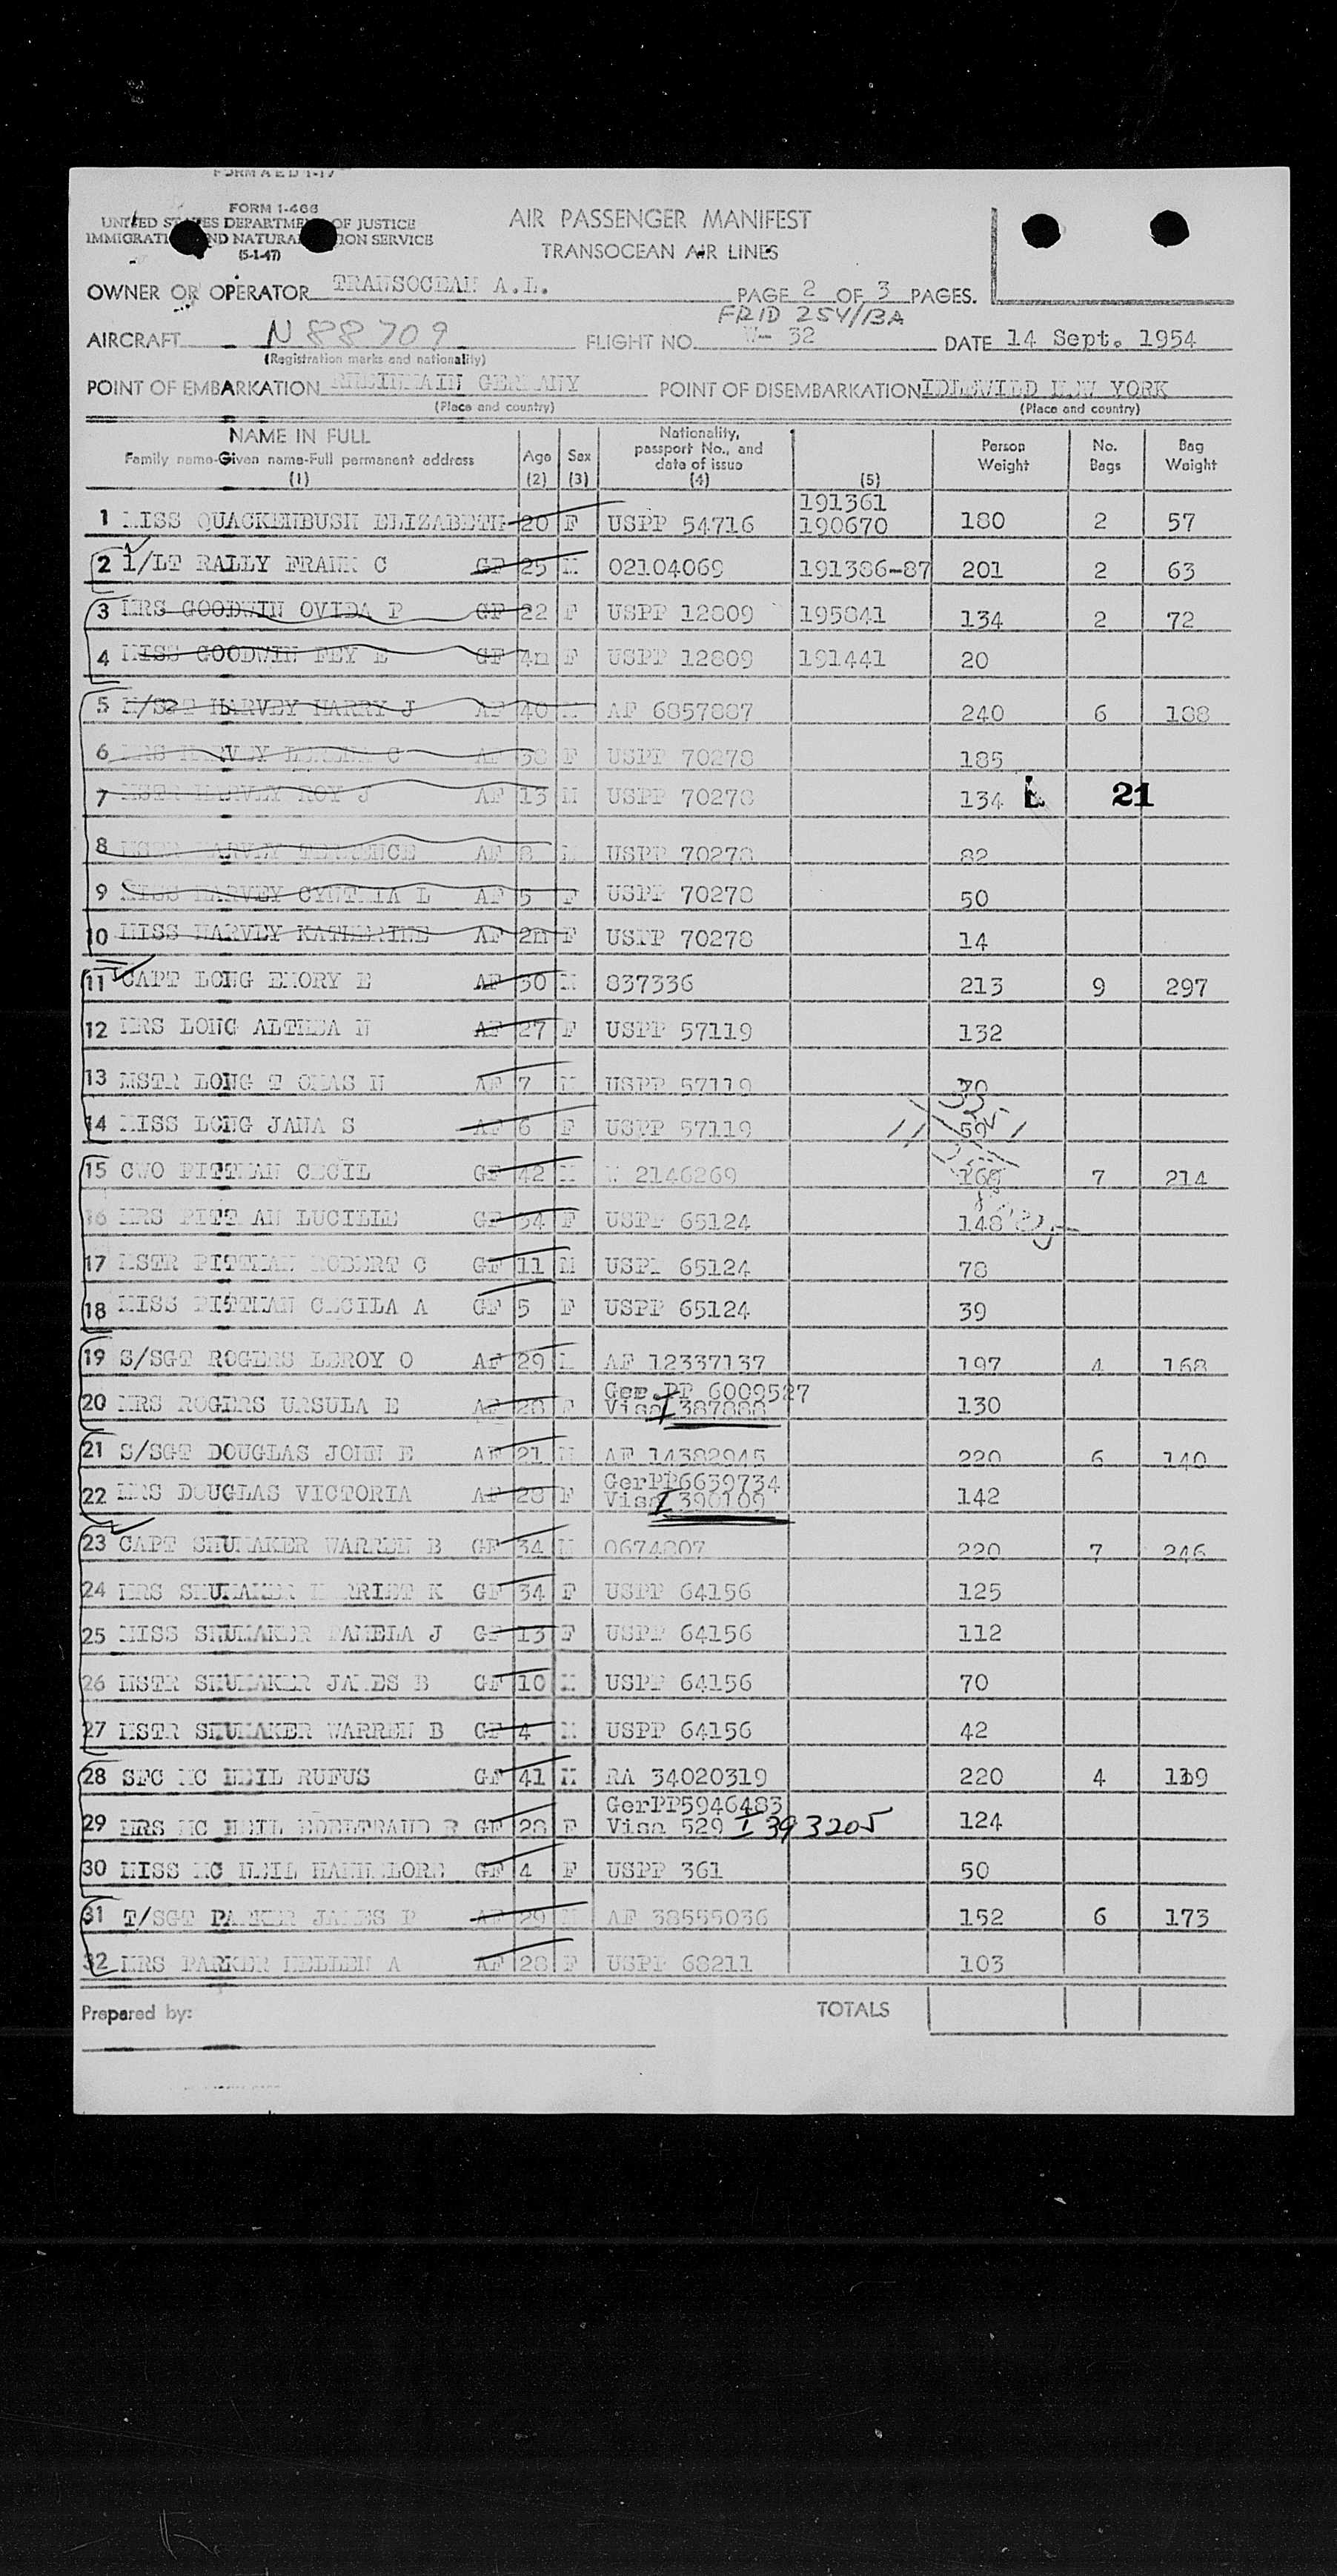 FORM 1-466
UNITED STATES DEPARTMENT OF JUSTICE
IMMIGRATION AND NATURALIZATION SERVICE
(5-1-47)
AIR PASSENGER MANIFEST
TRANSOCEAN AIR LINES
OWNER OR OPERATOR TRANSOCEAN A.L. PAGE 2 OF 3 PAGES.
FRID 254/13A
AIRCRAFT N 88709 FLIGHT NO. W- 32 DATE 14 Sept. 1954
(Registration marks and nationality)
POINT OF EMBARKATION RHEINMAIN GERMANY POINT OF DISEMBARKATION IDLEWILD NEW YORK
(Place and country) (Place and country)
NAME IN FULL
Family name-Given name-Full permanent address
(1)
Age (2) Sex (3) Nationality, passport No., and date of issue (4) (5) Person Weight No. Bags Bag Weight
191361
1 MISS QUACKENBUSH ELIZABETH 20 F USPP 54716 190670 180 2 57
2 1/LT RALLY FRANK C GF 25 M 02104069 191386-87 201 2 63
3 MRS GOODWIN OVIDA P GF 22 F USPP 12809 195841 134 2 72
4 MISS GOODWIN FEY E GF 4m F USPP 12809 191441 20
5 M/SGT HARVEY HARRY J AF 40 M AF 6857887 240 6 188
6 MRS HARVEY C AF 38 F USPP 70278 185
7 MSTR HARVEY ROY J AF 13 M USPP 70278 134 21
8 MSTR HARVEY TERRENCE AF 8 M USPP 70278 82
9 MISS HARVEY CYNTHIA L AF 5 F USPP 70278 50
10 MISS HARVEY KATHERINE AF 2m F USPP 70278 14
11 CAPT LONG EMORY E AF 30 M 837336 213 9 297
12 MRS LONG ALTHEA N AF 27 F USPP 57119 132
13 MSTR LONG T OMAS N AF 7 M USPP 57119 70
14 MISS LONG JANA S AF 6 F USPP 57119 59
15 CWO PITTMAN CECIL GF 42 M W 2146269 168 7 214
16 MRS PITT AN LUCILLE GF 34 F USPP 65124 148
17 MSTR PITTMAN ROBERT C GF 11 M USPP 65124 78
18 MISS PITTMAN CECILA A GF 5 F USPP 65124 39
19 S/SGT ROGERS LEROY O AF 29 M AF 12337137 197 4 168
Ger.PP 6009527
20 MRS ROGERS URSULA E AF 28 F Visa I 387888 130
21 S/SGT DOUGLAS JOHN E AF 21 M AF 14382945 220 6 140
GerPP6639734
22 MRS DOUGLAS VICTORIA AF 28 F Visa I 390109 142
23 CAPT SHUMAKER WARREN B GF 34 M 0674807 220 7 246
24 MRS SHUMAKER HARRIET K GF 34 F USPP 64156 125
25 MISS SHUMAKER PAMELA J GF 13 F USPP 64156 112
26 MSTR SHUMAKER JAMES B GF 10 M USPP 64156 70
27 MSTR SHUMAKER WARREN B GF 4 M USPP 64156 42
28 SFC MC NEIL RUFUS GF 41 M RA 34020319 220 4 119
GerPP5946483
29 MRS MC NEIL EDELTRAUD R GF 28 F Visa 529 I 393205 124
30 MISS MC NEIL HANNELORE GF 4 F USPP 361 50
31 T/SGT PARKER JAMES P AF 29 M AF 38555036 152 6 173
32 MRS PARKER HELLEN A AF 28 F USPP 68211 103
Prepared by: TOTALS